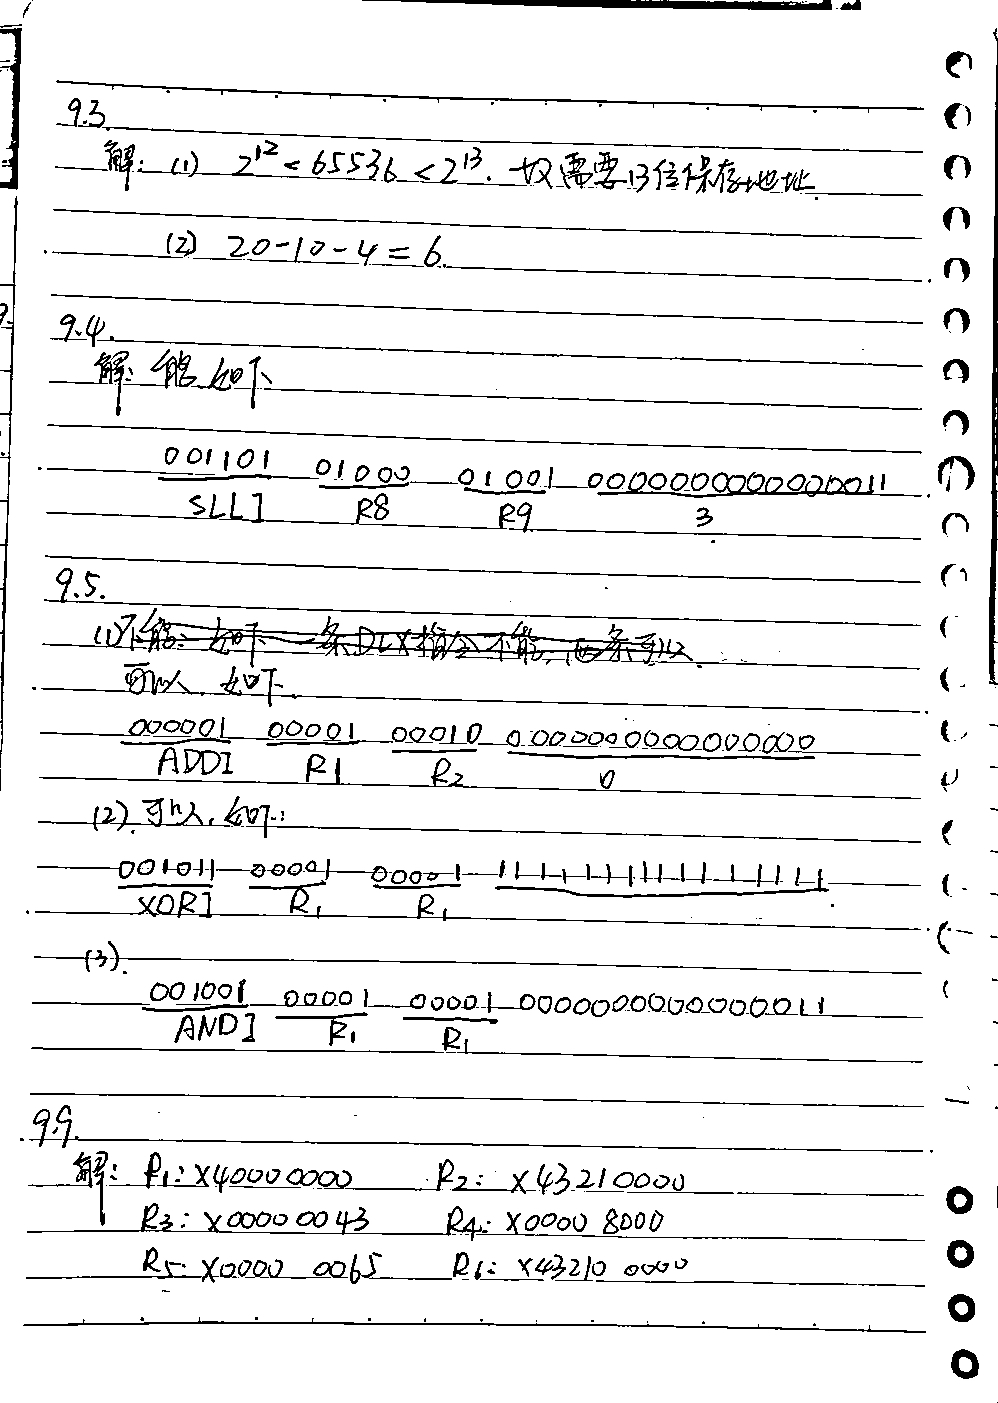 9.3.
解: (1) 2^12 < 65536 < 2^13. 故需要13位保存地址.
(2) 20-10-4=6.
9.4.
解: 能. 如下.
001101 01000 01001 0000000000000011
SLLI R8 R9 3
9.5.
(1)不能: 如下 一条DLX指令不能, 两条可以
可以. 如下.
000001 00001 00010 0000000000000000
ADDI R1 R2 0
(2). 可以, 如下:
001011 00001 00001 1111111111111111
XORI R1 R1
(3).
001001 00001 00001 0000000000000011
ANDI R1 R1
9.9.
解: R1: x40000000 R2: x43210000
R3: x00000043 R4: x00008000
R5: x00000065 R6: x432100000